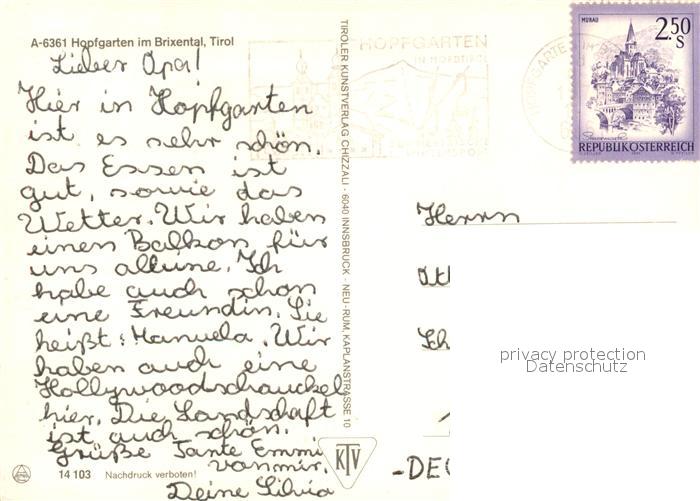 A-6361 Hopfgarten im Brixental, Tirol
Lieber Opa!
Hier in Hopfgarten
ist es sehr schön.
Das Essen ist
gut, sowie das
Wetter. Wir haben
einen Balkon für
uns alleine. Ich
habe auch schon
eine Freundin. Sie
heißt: Manuela. Wir
haben auch eine
Hollywoodschauckel
hier. Die Landschaft
ist auch schön.
Grüße Tante Emmi
von mir.
Deine Silvia
14 103 Nachdruck verboten!
TIROLER KUNSTVERLAG CHIZZALI · 6040 INNSBRUCK - NEU-RUM, KAPLANSTRASSE 10
KTV
HOPFGARTEN
IN NORDTIROL
MURAU
2.50
S
REPUBLIK ÖSTERREICH
Herrn
privacy protection
Datenschutz